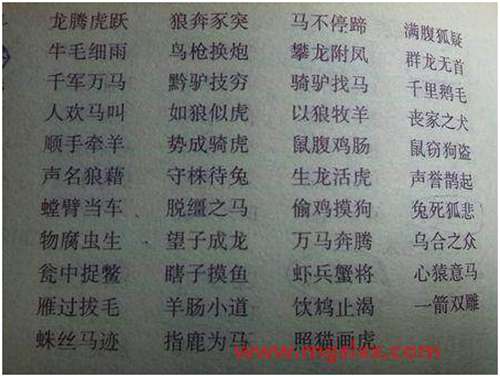 龙腾虎跃 狼奔豕突 马不停蹄 满腹狐疑
牛毛细雨 鸟枪换炮 攀龙附凤 群龙无首
千军万马 黔驴技穷 骑驴找马 千里鹅毛
人欢马叫 如狼似虎 以狼牧羊 丧家之犬
顺手牵羊 势成骑虎 鼠腹鸡肠 鼠窃狗盗
声名狼藉 守株待兔 生龙活虎 声誉鹊起
螳臂当车 脱缰之马 偷鸡摸狗 兔死狐悲
物腐虫生 望子成龙 万马奔腾 乌合之众
瓮中捉鳖 瞎子摸鱼 虾兵蟹将 心猿意马
雁过拔毛 羊肠小道 饮鸩止渴 一箭双雕
蛛丝马迹 指鹿为马 照猫画虎